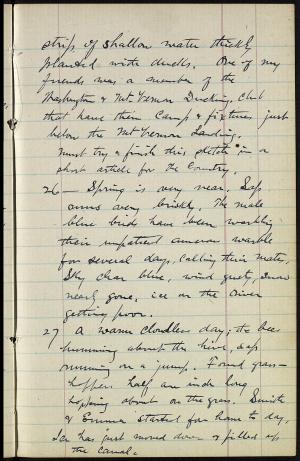 strip of shallow water thickly
planted with ducks. One of my
friends was a member of the
Washington & Mt Vernon Ducking Club
that have their Camp & fixtures just
below the Mt Vernon Landing.
Must try & finish this sketch in a
short article for the Country.
26 — Spring is very near. Sap
runs very briskly. The male
blue birds have been warbling
their impatient amorous warble
for several days, calling their mates,
Sky clear blue, wind gusty, snow
nearly gone, ice on the river
getting poor.
27 A warm cloudless day; the bees
humming about the hive, sap
running on a jump. Found grass-
hoppers half an inch long
hopping about on the grass. Smith
& Emma started for home to day,
Ice has just moved down & filled up
the canal.